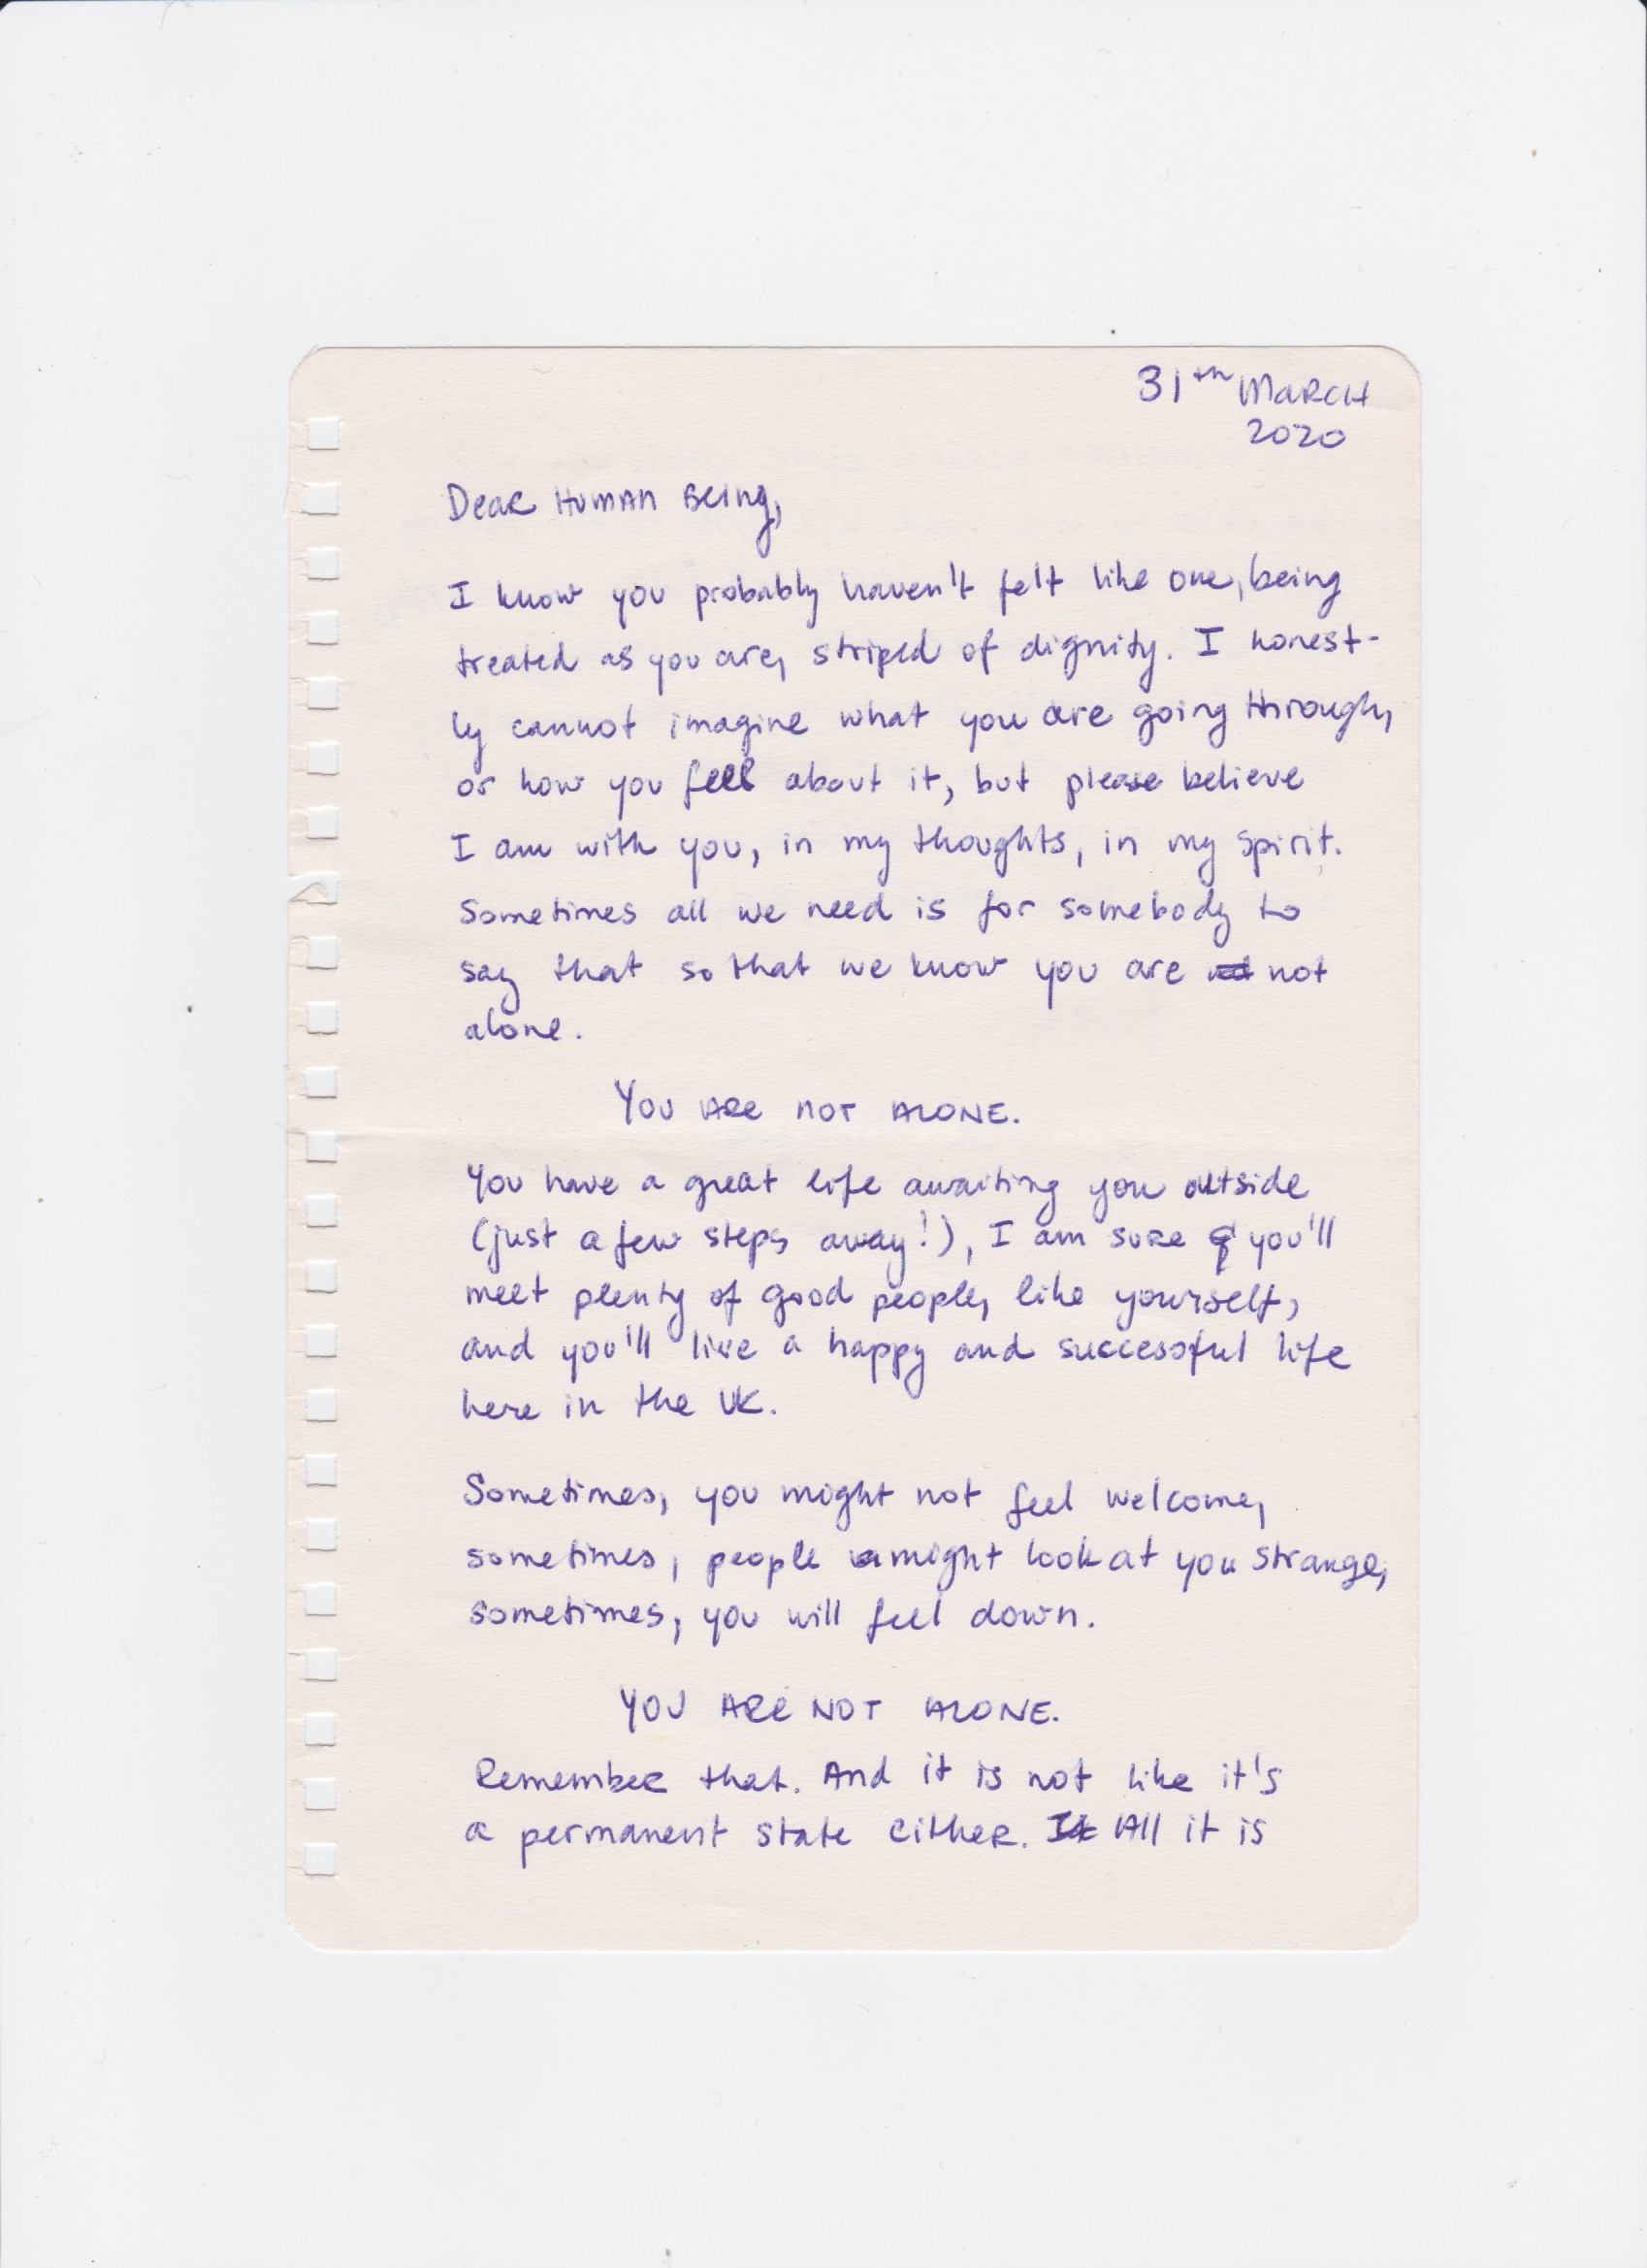 31th MARCH
2020
Dear Human Being,
I know you probably haven't felt like one, being
treated as you are, striped of dignity. I honest-
ly cannot imagine what you are going through,
or how you feel about it, but please believe
I am with you, in my thoughts, in my spirit.
Sometimes all we need is for somebody to
say that so that we know you are not
alone.
YOU ARE NOT ALONE.
You have a great life awaiting you outside
(just a few steps away!), I am sure you'll
meet plenty of good people, like yourself,
and you'll live a happy and successful life
here in the UK.
Sometimes, you might not feel welcome,
sometimes, people might look at you strange,
sometimes, you will feel down.
YOU ARE NOT ALONE.
Remember that. And it is not like it's
a permanent state either. All it is